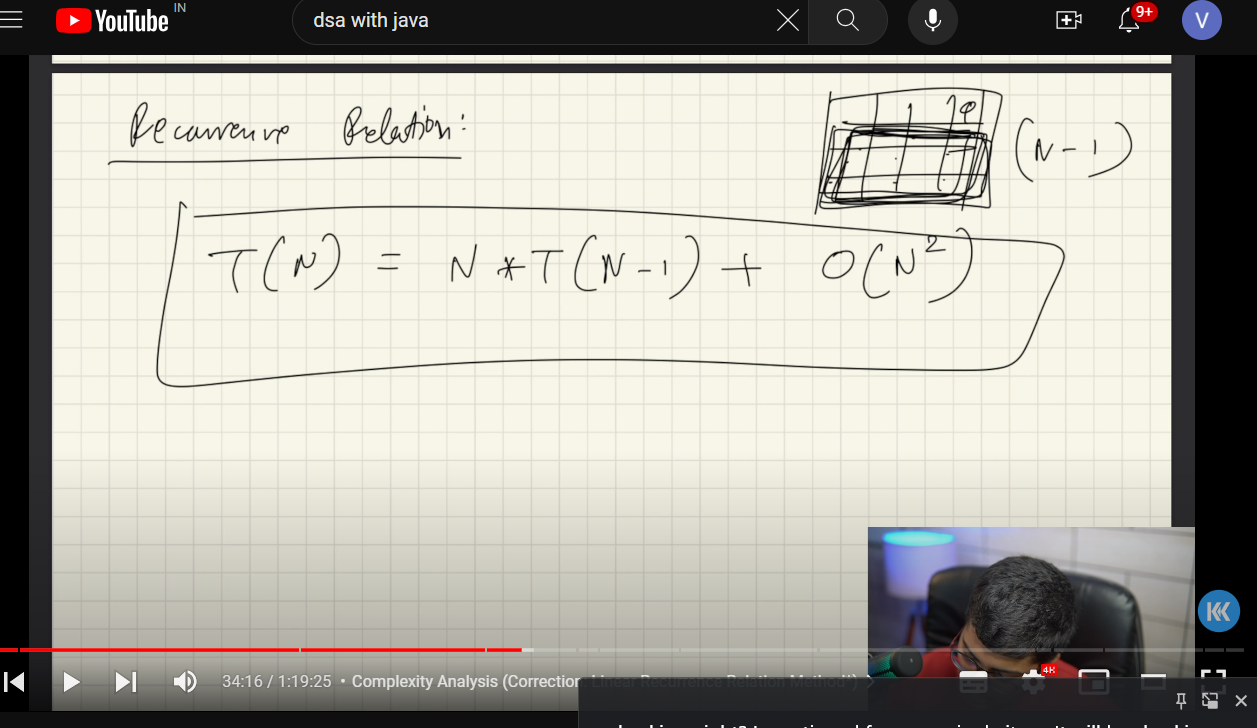 YouTube IN
dsa with java
9+
V
Recurrence Relation:
(N-1)
T(N) = N * T(N-1) + O(N²)
34:16 / 1:19:25 • Complexity Analysis (Correction: Linear Recurrence Relation Method*)
4K